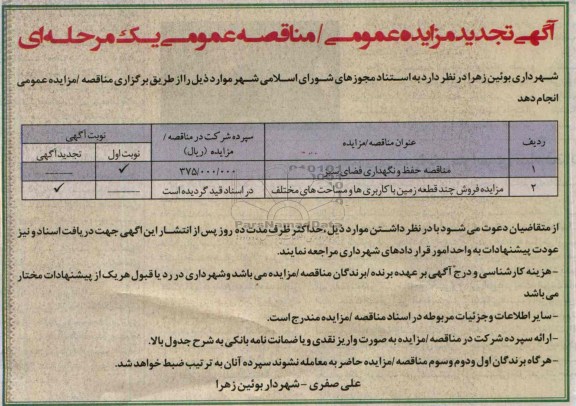 آگهی تجدید مزایده عمومی / مناقصه عمومی یک مرحله‌ای
شهرداری بوئین زهرا در نظر دارد به استناد مجوزهای شورای اسلامی شهر موارد ذیل را از طریق برگزاری مناقصه / مزایده عمومی
انجام دهد
ردیف
عنوان مناقصه/مزایده
سپرده شرکت در مناقصه /
مزایده (ریال)
نوبت آگهی
نوبت اول
تجدید آگهی
۱
مناقصه حفظ و نگهداری فضای سبز
۳۷۵/۰۰۰/۰۰۰
✓
——
۲
مزایده فروش چند قطعه زمین با کاربری ها و مساحت های مختلف
در اسناد قید گردیده است
——
✓
ParsNamadData
از متقاضیان دعوت می شود با در نظر داشتن موارد ذیل، حداکثر ظرف مدت ده روز پس از انتشار این آگهی جهت دریافت اسناد و نیز
عودت پیشنهادات به واحد امور قراردادهای شهرداری مراجعه نمایند.
- هزینه کارشناسی و درج آگهی بر عهده برنده / برندگان مناقصه / مزایده می باشد و شهرداری در رد یا قبول هر یک از پیشنهادات مختار
می باشد
- سایر اطلاعات و جزئیات مربوطه در اسناد مناقصه / مزایده مندرج است.
- ارائه سپرده شرکت در مناقصه / مزایده به صورت واریز نقدی و یا ضمانت نامه بانکی به شرح جدول بالا.
- هر گاه برندگان اول و دوم و سوم مناقصه / مزایده حاضر به معامله نشوند سپرده آنان به ترتیب ضبط خواهد شد.
علی صفری - شهردار بوئین زهرا